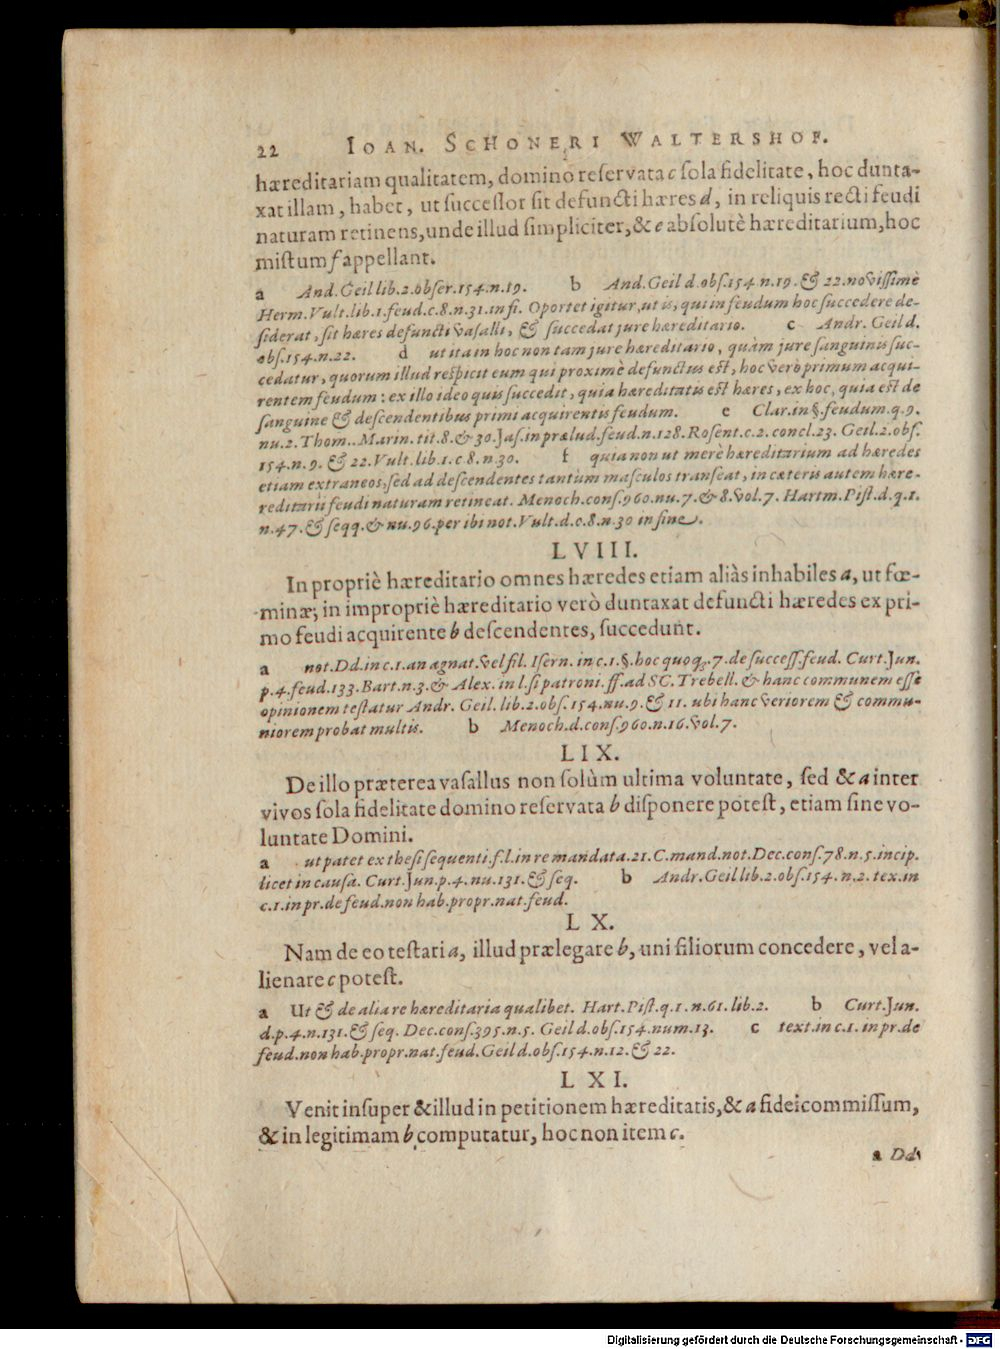 22 IOAN. SCHONERI WALTERSHOF.
hæreditariam qualitatem, domino reservata c sola fidelitate, hoc dunta-
xat illam, habet, ut successor sit defuncti hæres d, in reliquis recti feudi
naturam retinens, unde illud simpliciter, & e absolutè hæreditarium, hoc
mistum f appellant.
a And. Geil lib. 2. obser. 154. n. 19. b And. Geil d. obs. 154. n. 19. & 22. novissimè
Herm. Vult. lib. 1. feud. c. 8. n. 31. in fi. Oportet igitur, ut is, qui in feudum hoc succedere de-
siderat, sit hæres defuncti vasalli, & succedat jure hæreditario. c Andr. Geil d.
obs. 154. n. 22. d ut ita in hoc non tam jure hæreditario, quàm jure sanguinis suc-
cedatur, quorum illud respicit eum qui proximè defunctus est, hoc verò primum acqui-
rentem feudum: ex illo ideo quis succedit, quia hæreditatis est hæres, ex hoc, quia est de
sanguine & descendentibus primi acquirentis feudum. e Clar. in §. feudum. q. 9.
nu. 2. Thom.. Marin. tit. 8. & 30. Jas. in prælud. feud. n. 128. Rosent. c. 2. concl. 23. Geil. 2. obs.
154. n. 9. & 22. Vult. lib. 1. c. 8. n. 30. f quia non ut merè hæreditarium ad hæredes
etiam extraneos, sed ad descendentes tantùm masculos transeat, in cæteris autem hære-
reditarii feudi naturam retineat. Menoch. cons. 960. nu. 7. & 8. Vol. 7. Hartm. Pist. d. q. 1.
n. 47. & seqq. & nu. 96. per ibi not. Vult. d. c. 8. n. 30 in fine.
LVIII.
In propriè hæreditario omnes hæredes etiam aliàs inhabiles a, ut fœ-
minæ; in impropriè hæreditario verò duntaxat defuncti hæredes ex pri-
mo feudi acquirente b descendentes, succedunt.
a not. Dd. in c. 1. an agnat. vel fil. Isern. in c. 1. §. hoc quoq;. 7. de success. feud. Curt. Jun.
p. 4. feud. 133. Bart. n. 3. & Alex. in l. si patroni. ff. ad SC. Trebell. & hanc communem esse
opinionem testatur Andr. Geil. lib. 2. obs. 154. nu. 9. & 11. ubi hanc veriorem & commu-
niorem probat multis. b Menoch. d. cons. 960. n. 16. vol. 7.
LIX.
De illo præterea vasallus non solùm ultima voluntate, sed & a inter
vivos sola fidelitate domino reservata b disponere potest, etiam sine vo-
luntate Domini.
a ut patet ex thesi sequenti. f. l. in re mandata. 21. C. mand. not. Dec. cons. 78. n. 5. incip.
licet in causa. Curt. Jun. p. 4. nu. 131. & seq. b Andr. Geil lib. 2. obs. 154. n. 2. tex. in
c. 1. in pr. de feud. non hab. propr. nat. feud.
LX.
Nam de eo testari a, illud prælegare b, uni filiorum concedere, vel a-
lienare c potest.
a Ut & de alia re hæreditaria qualibet. Hart. Pist. q. 1. n. 61. lib. 2. b Curt. Jun.
d. p. 4. n. 131. & seq. Dec. cons. 395. n. 5. Geil d. obs. 154. num. 13. c text. in c. 1. in pr. de
feud. non hab. propr. nat. feud. Geil d. obs. 154. n. 12. & 22.
LXI.
Venit insuper & illud in petitionem hæreditatis, & a fideicommissum,
& in legitimam b computatur, hoc non item c.
a Dd.
Digitalisierung gefördert durch die Deutsche Forschungsgemeinschaft - DFG